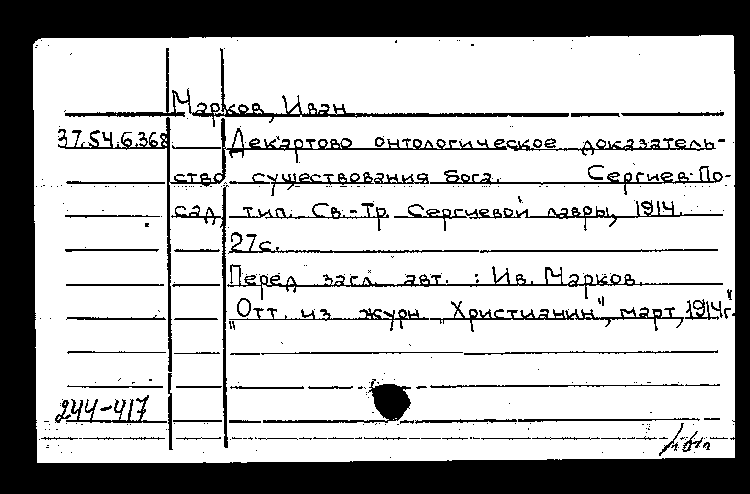 Марков, Иван
37.54.6.368 Декартово онтологическое доказатель-
ство существования бога. Сергиев-По-
сад, тип. Св.-Тр. Сергиевой лавры, 1914.
27с.
Перед загл. авт. : Ив. Марков.
"Отт. из журн. "Христианин", март, 1914г."
244-417